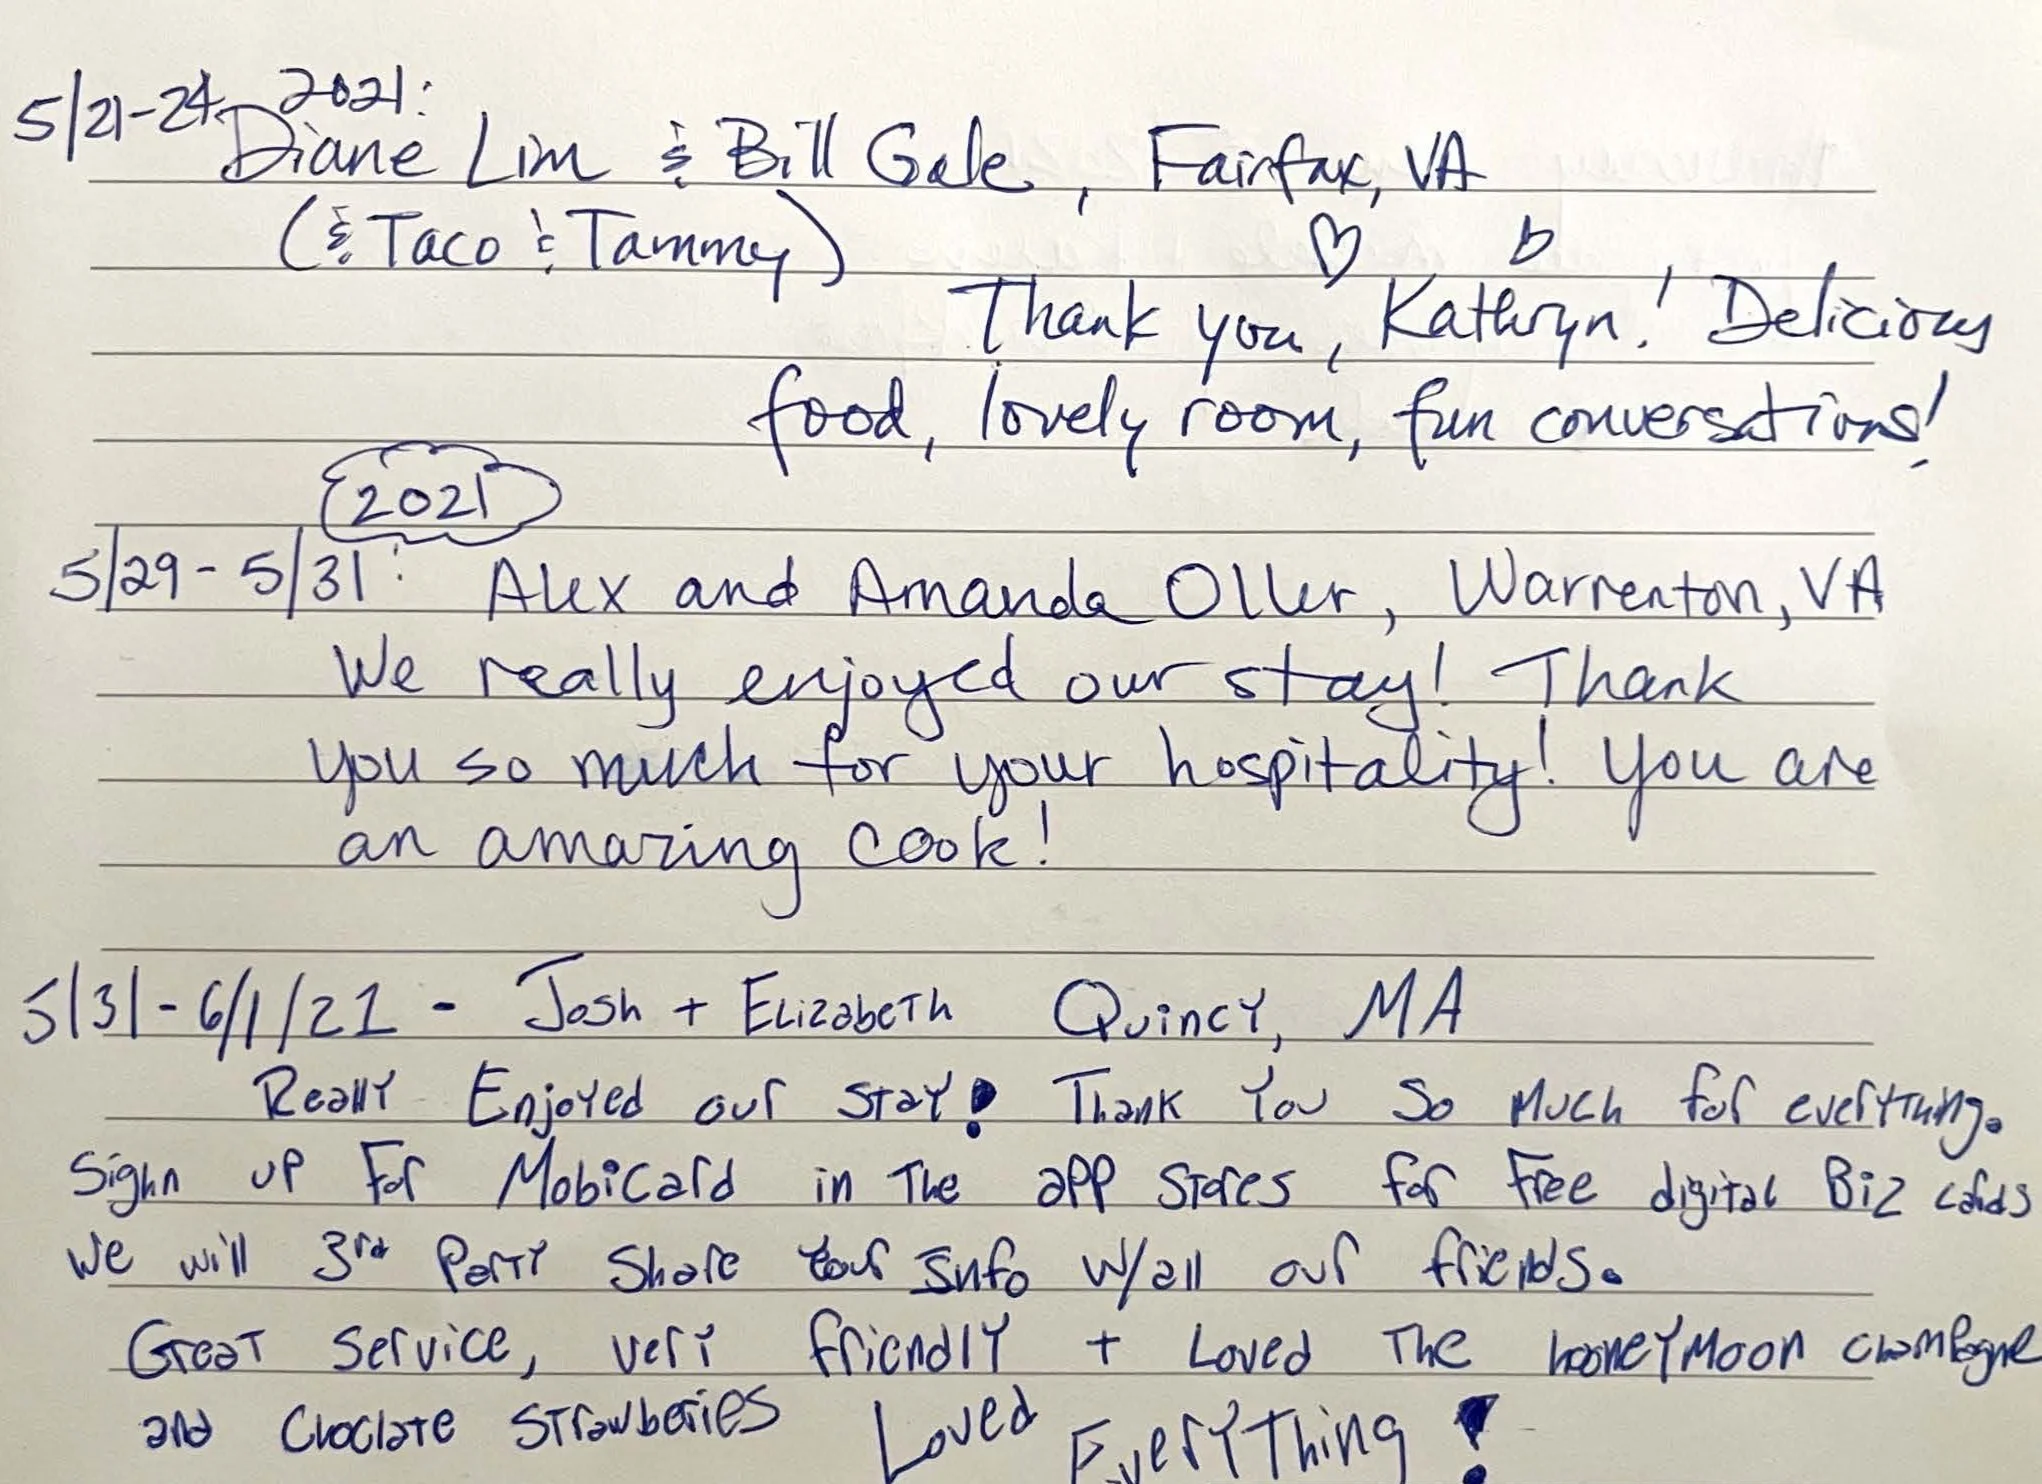 5/21-24, 2021:
Diane Lim & Bill Gale, Fairfax, VA
(& Taco & Tammy)
Thank you, Kathryn! Delicious
food, lovely room, fun conversations!
2021
5/29 - 5/31: Alex and Amanda Oller, Warrenton, VA
We really enjoyed our stay! Thank
you so much for your hospitality! You are
an amazing cook!
5/31 - 6/1/21 - Josh + Elizabeth Quincy, MA
Really Enjoyed our stay! Thank You So Much for everything.
Sighn up For Mobicard in The app stores for Free digital Biz cards
We will 3rd Party Share Your Info w/all our friends.
Great service, very friendly + Loved The hooneyMoon champagne
and Choclate Strawberies Loved EveryThing!